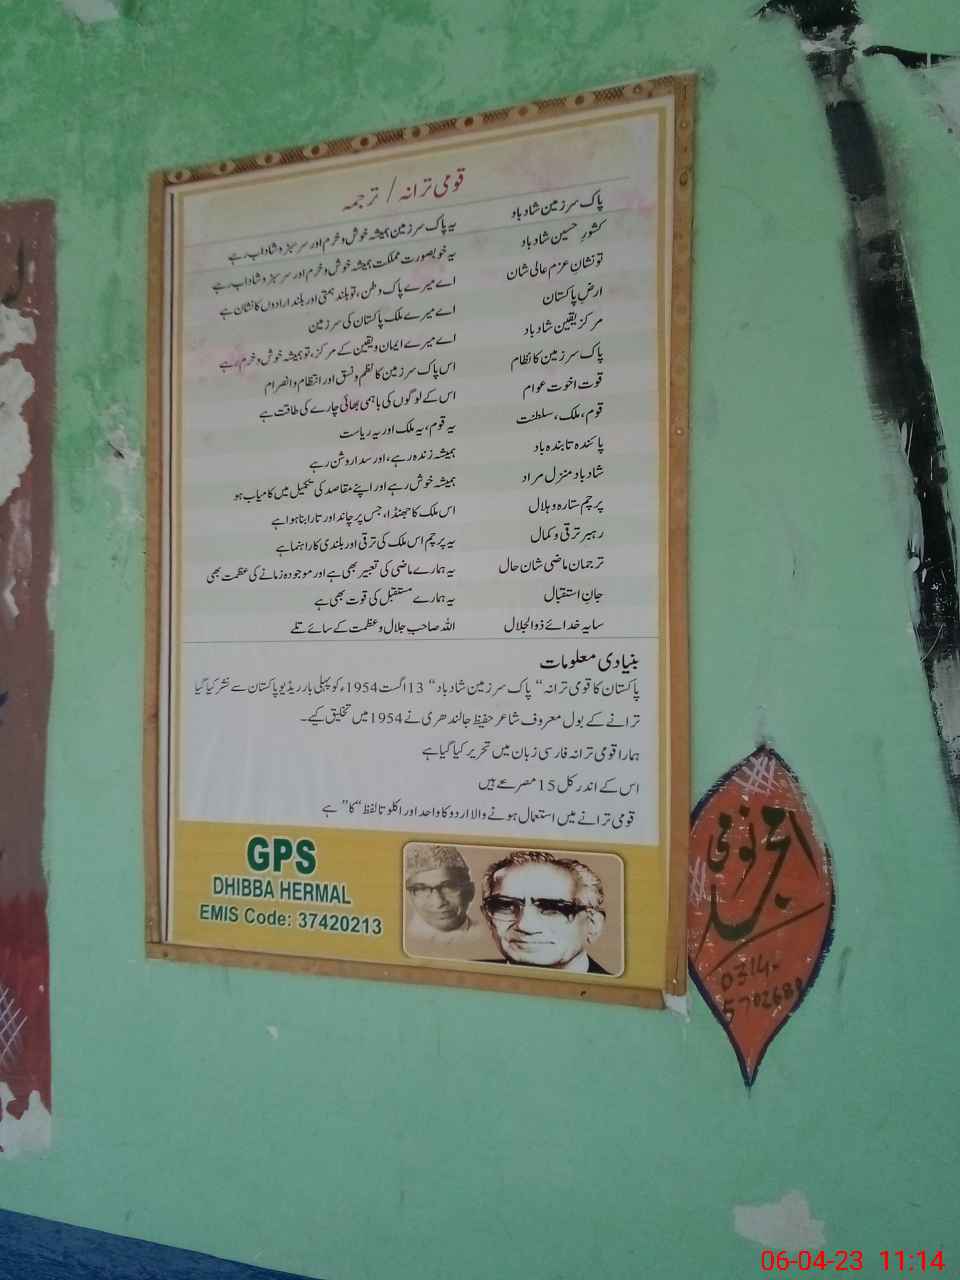 قومی ترانہ / ترجمہ
پاک سرزمین شاد باد یہ پاک سرزمین ہمیشہ خوش و خرم اور سرسبز و شاداب رہے
کشورِ حسین شاد باد یہ خوبصورت مملکت ہمیشہ خوش و خرم اور سرسبز و شاداب رہے
تو نشانِ عزم عالی شان اے میرے پاک وطن، تو بلند ہمتی اور بلند ارادوں کا نشان ہے
ارضِ پاکستان اے میرے ملک پاکستان کی سرزمین
مرکز یقین شاد باد اے میرے ایمان و یقین کے مرکز، تو ہمیشہ خوش و خرم رہے
پاک سرزمین کا نظام اس پاک سرزمین کا نظم و نسق اور انتظام و انصرام
قوت اخوت عوام اس کے لوگوں کی باہمی بھائی چارے کی طاقت ہے
قوم، ملک، سلطنت یہ قوم، یہ ملک اور یہ ریاست
پائندہ تابندہ باد ہمیشہ زندہ رہے، اور سدا روشن رہے
شاد باد منزل مراد ہمیشہ خوش رہے اور اپنے مقاصد کی تکمیل میں کامیاب ہو
پرچم ستارہ و ہلال اس ملک کا جھنڈا، جس پر چاند اور تارا بنا ہوا ہے
رہبر ترقی و کمال یہ پرچم اس ملک کی ترقی اور بلندی کا راہنما ہے
ترجمان ماضی شان حال یہ ہمارے ماضی کی تعبیر بھی ہے اور موجودہ زمانے کی عظمت بھی
جانِ استقبال یہ ہمارے مستقبل کی قوت بھی ہے
سایہ خدائے ذوالجلال اللہ صاحبِ جلال و عظمت کے سائے تلے
بنیادی معلومات
پاکستان کا قومی ترانہ “ پاک سرزمین شاد باد “ 13 اگست 1954ء کو پہلی بار ریڈیو پاکستان سے نشر کیا گیا
ترانے کے بول معروف شاعر حفیظ جالندھری نے 1954 میں تخلیق کیے۔
ہمارا قومی ترانہ فارسی زبان میں تحریر کیا گیا ہے
اس کے اندر کل 15 مصرعے ہیں
قومی ترانے میں استعمال ہونے والا اردو کا واحد اور اکلوتا لفظ “کا” ہے
GPS
DHIBBA HERMAL
EMIS Code: 37420213
امجد نومی
0314-
5702680
06-04-23 11:14